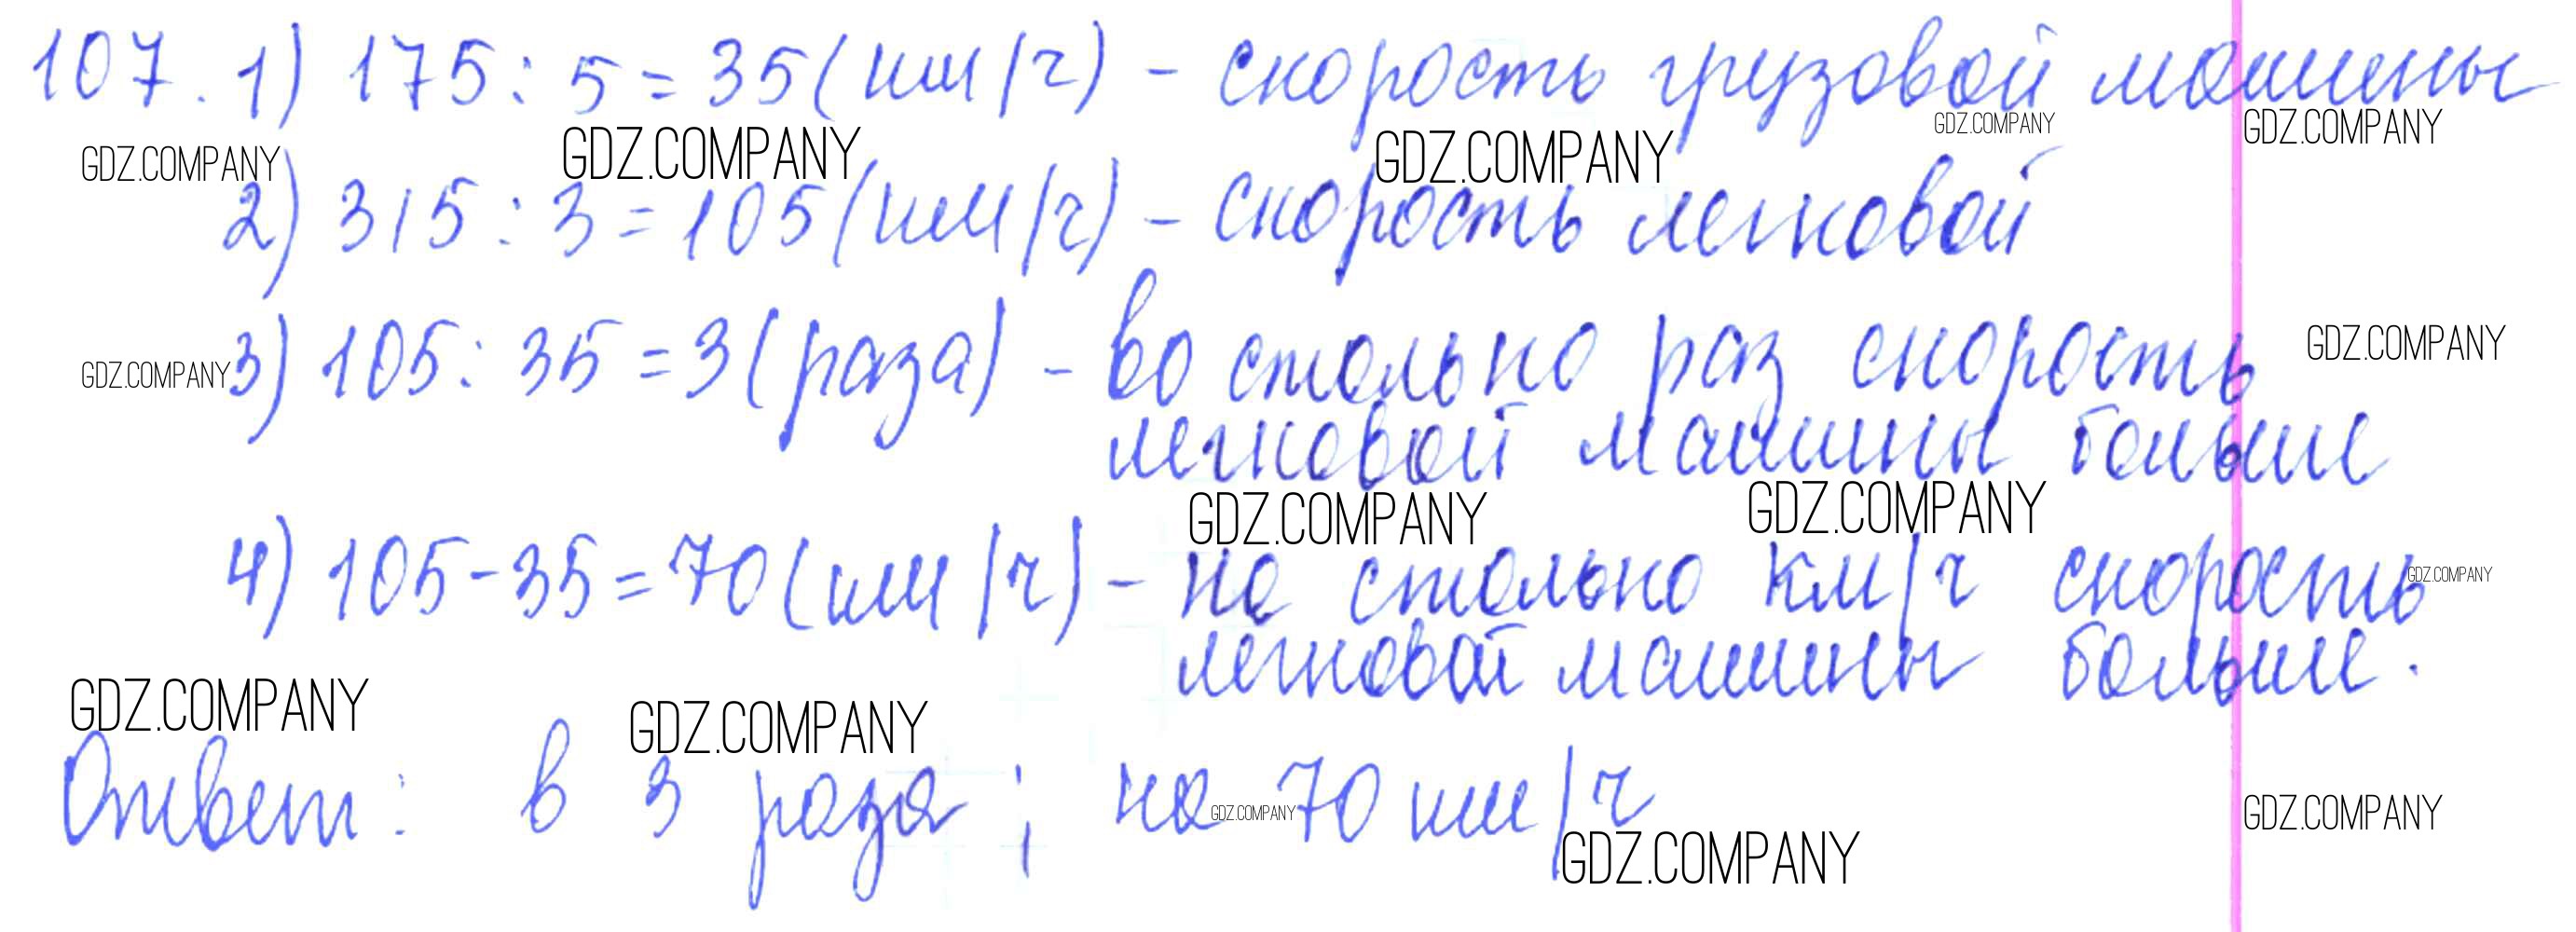 107. 1) 175 : 5 = 35 (км/ч) - скорость грузовой машины
GDZ.COMPANY GDZ.COMPANY GDZ.COMPANY GDZ.COMPANY GDZ.COMPANY
2) 315 : 3 = 105 (км/ч) - скорость легковой
3) 105 : 35 = 3 (раза) - во столько раз скорость
GDZ.COMPANY GDZ.COMPANY
легковой машины больше
GDZ.COMPANY GDZ.COMPANY
4) 105 - 35 = 70 (км/ч) - на столько км/ч скорость
GDZ.COMPANY
легковой машины больше.
GDZ.COMPANY GDZ.COMPANY
Ответ: в 3 раза; на 70 км/ч
GDZ.COMPANY GDZ.COMPANY
GDZ.COMPANY